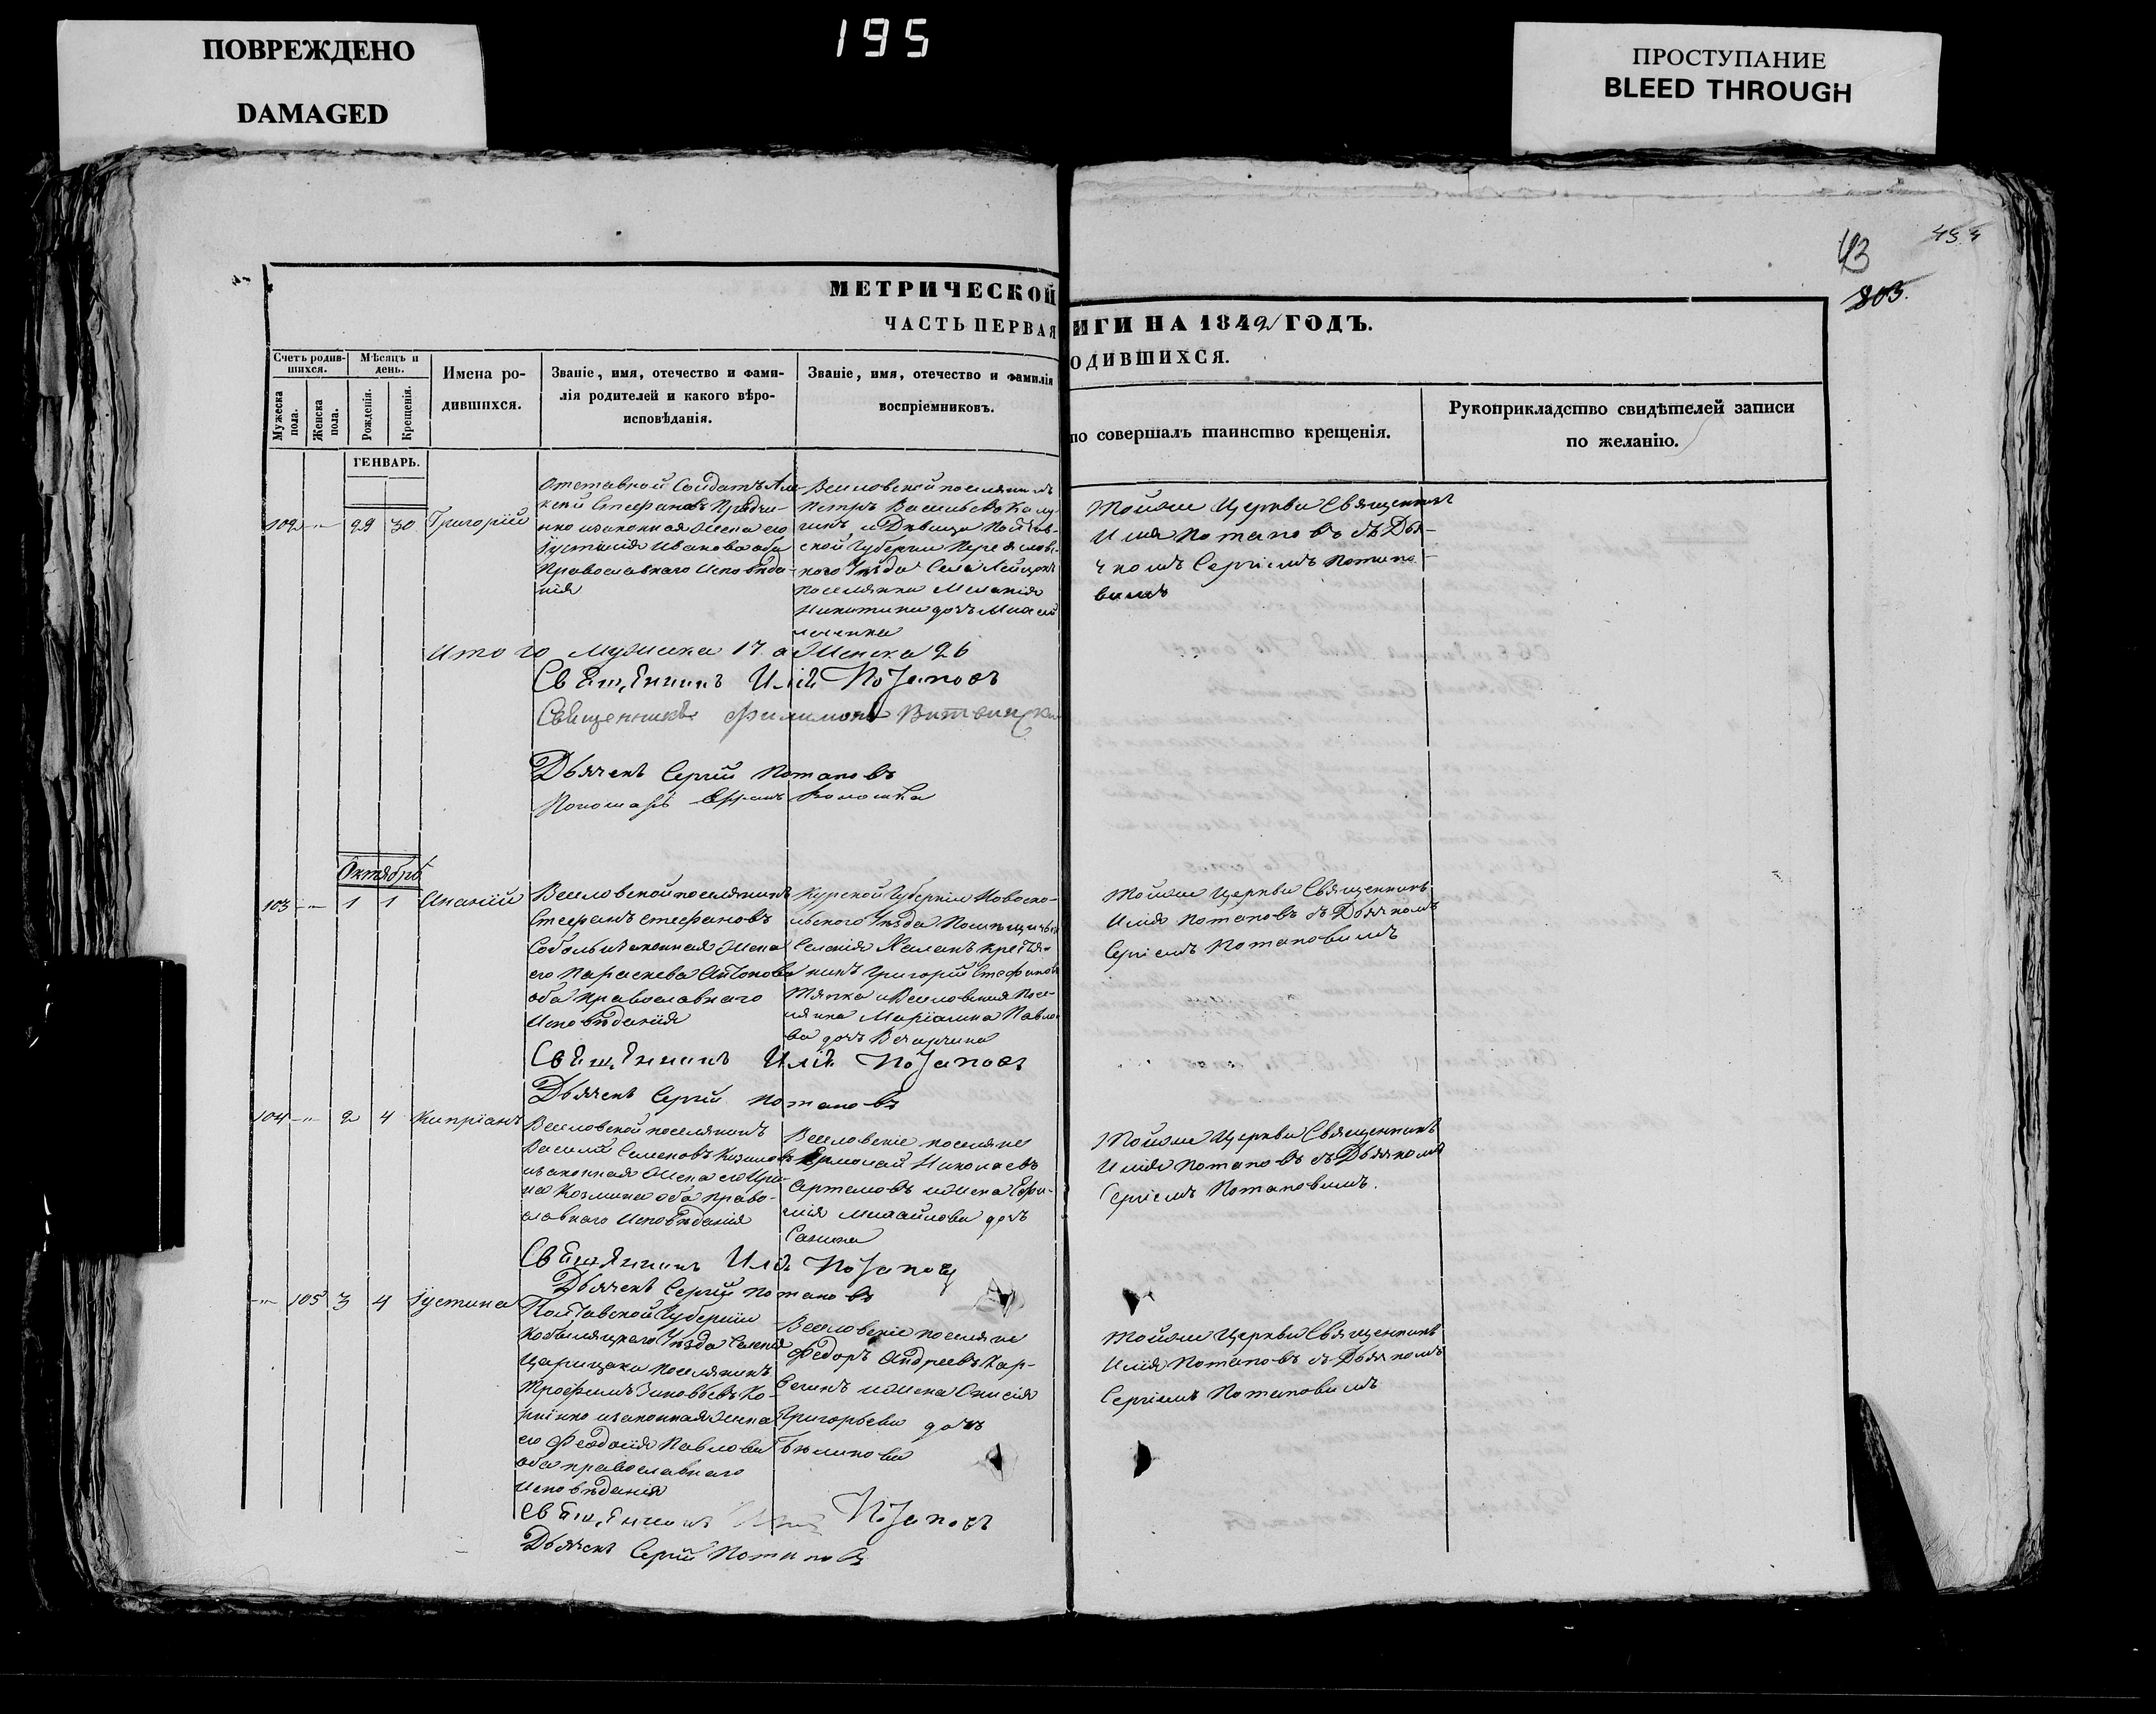 195
ПОВРЕЖДЕНО
DAMAGED
ПРОСТУПАНИЕ
BLEED THROUGH
43
803.
МЕТРИЧЕСКОЙ
ИГИ НА 1842 ГОДЪ.
ЧАСТЬ ПЕРВАЯ
ОДИВШИХСЯ.
Счетъ родив-
шихся.
Мужеска
пола.
Женска
пола.
Мѣсяцъ и
день.
Рожденія.
Крещенія.
Имена ро-
дившихся.
Званіе, имя, отечество и фами-
лія родителей и какого вѣро-
исповѣданія.
Званіе, имя, отечество и фамилія
воспріемниковъ.
по совершалъ таинство крещенія.
Рукоприкладство свидѣтелей записи
по желанію.
ГЕНВАРЬ.
102 -"- 29 30 Григорій
Отставной Солдатъ Але-
ксѣй Стефановъ
законная жена его
Іустинія Иванова оба
Православнаго Исповѣда-
нія
Веселовской поселянинъ
Петръ Васильевъ
и Дѣвица Полтав-
ской Губерніи Переяслав-
ского Уѣзда Села
поселянка Меланія
Никитина дочь
Тойже Церкви Священникъ
Илія Потаповъ съ Дья-
чкомъ Сергіемъ Потапо-
вимъ
Итого Мужеска 17 а Женска 26
Священникъ Илій Потаповъ
Священникъ Филимонъ
Дьячекъ Сергій Потаповъ
Пономарь
Октябрь
103 -"- 1 1 Ананій
Веселовской поселянинъ
Стефанъ Стефановъ
Соболь законная Жена
его Параскева Антонова
оба православнаго
Исповѣданія
Курской Губерніи Новооско-
льского Уѣзда
Селенія Халанъ крестья-
нинъ Григорій Стефановъ
и Веселовская Посе-
лянка Маріамна Павло-
ва дочь
Тойже Церкви Священникъ
Илія Потаповъ съ Дьячкомъ
Сергіемъ Потаповимъ
Священникъ Илій Потаповъ
Дьячекъ Сергій Потаповъ
104 -"- 2 4 Кипріанъ
Веселовской поселянинъ
Василій Семеновъ
законная Жена его Ири-
на Козмина оба право-
славнаго Исповѣданія
Веселовскіе поселяне
Ермолай Николаевъ
Артемовъ и жена
Михайлова дочь
Санина
Тойже Церкви Священникъ
Илія Потаповъ съ Дьячкомъ
Сергіемъ Потаповимъ.
Священникъ Илій Потаповъ
Дьячекъ Сергій Потаповъ
-"- 105 3 4 Іустина
Полтавской Губерніи
Кобеляцкаго Уѣзда
Царичанки поселянинъ
Трофимъ Зиновьевъ
законная Жена
его Феодосія Павлова
оба православнаго
Исповѣданія
Веселовскіе поселяне
Федоръ Андреевъ
и жена Онисія
Григорьева дочь
Тойже Церкви Священникъ
Илія Потаповъ съ Дьячкомъ
Сергіемъ Потаповимъ
Священникъ Илій Потаповъ
Дьячекъ Сергій Потаповъ